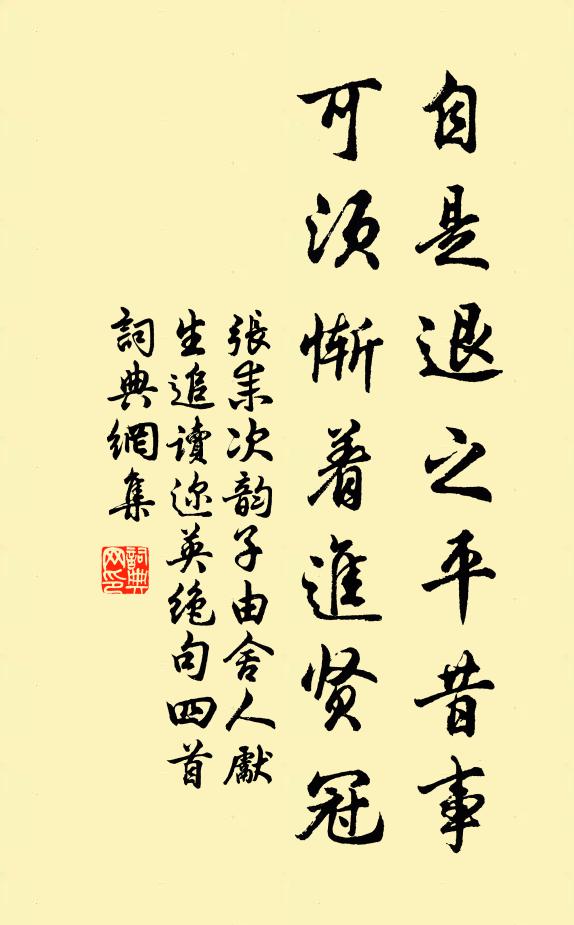 自是退之平昔事
可須慚着進贤冠
張耒次韵子由舍人獻
生追讀迩英絶句四首
詞典網集
詞典网印